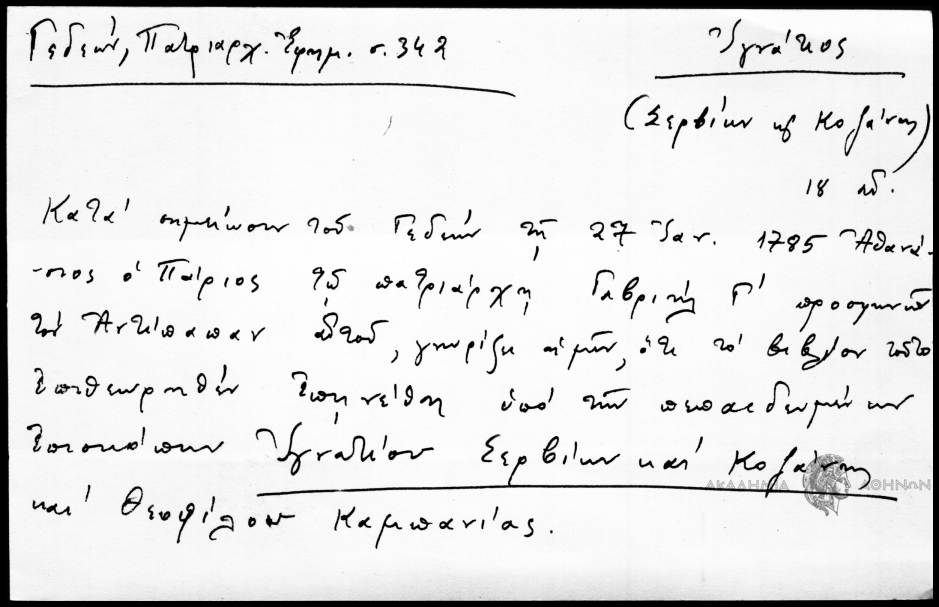 Γεδεών, Πατριαρχ. Ἐφημ. σ. 342
Ἰγνάτιος
(Σερβίων κ Κοζάνης)
18 αἰ.
Κατά σημείωσιν τοῦ Γεδεών τῇ 27 Ἰαν. 1785 Ἀθανά-
-σιος ὁ Πάριος τῷ πατριάρχῃ Γαβριήλ Γ΄ προσφωνῶν
τόν Ἀντίπαπαν αὐτοῦ, γνωρίζει αὐτῷ, ὅτι τό βιβλίον τοῦτο
ἐπιθεωρηθέν ἐπῃνέθη ὑπό τῶν πεπαιδευμένων
ἐπισκόπων Ἰγνατίου Σερβίων καί Κοζάνης
καί Θεοφίλου Καμπανίας.
ΑΚΑΔΗΜΙΑ ΑΘΗΝΩΝ